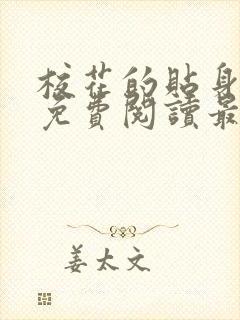 校花的貼身
免費閱讀最
姜太文